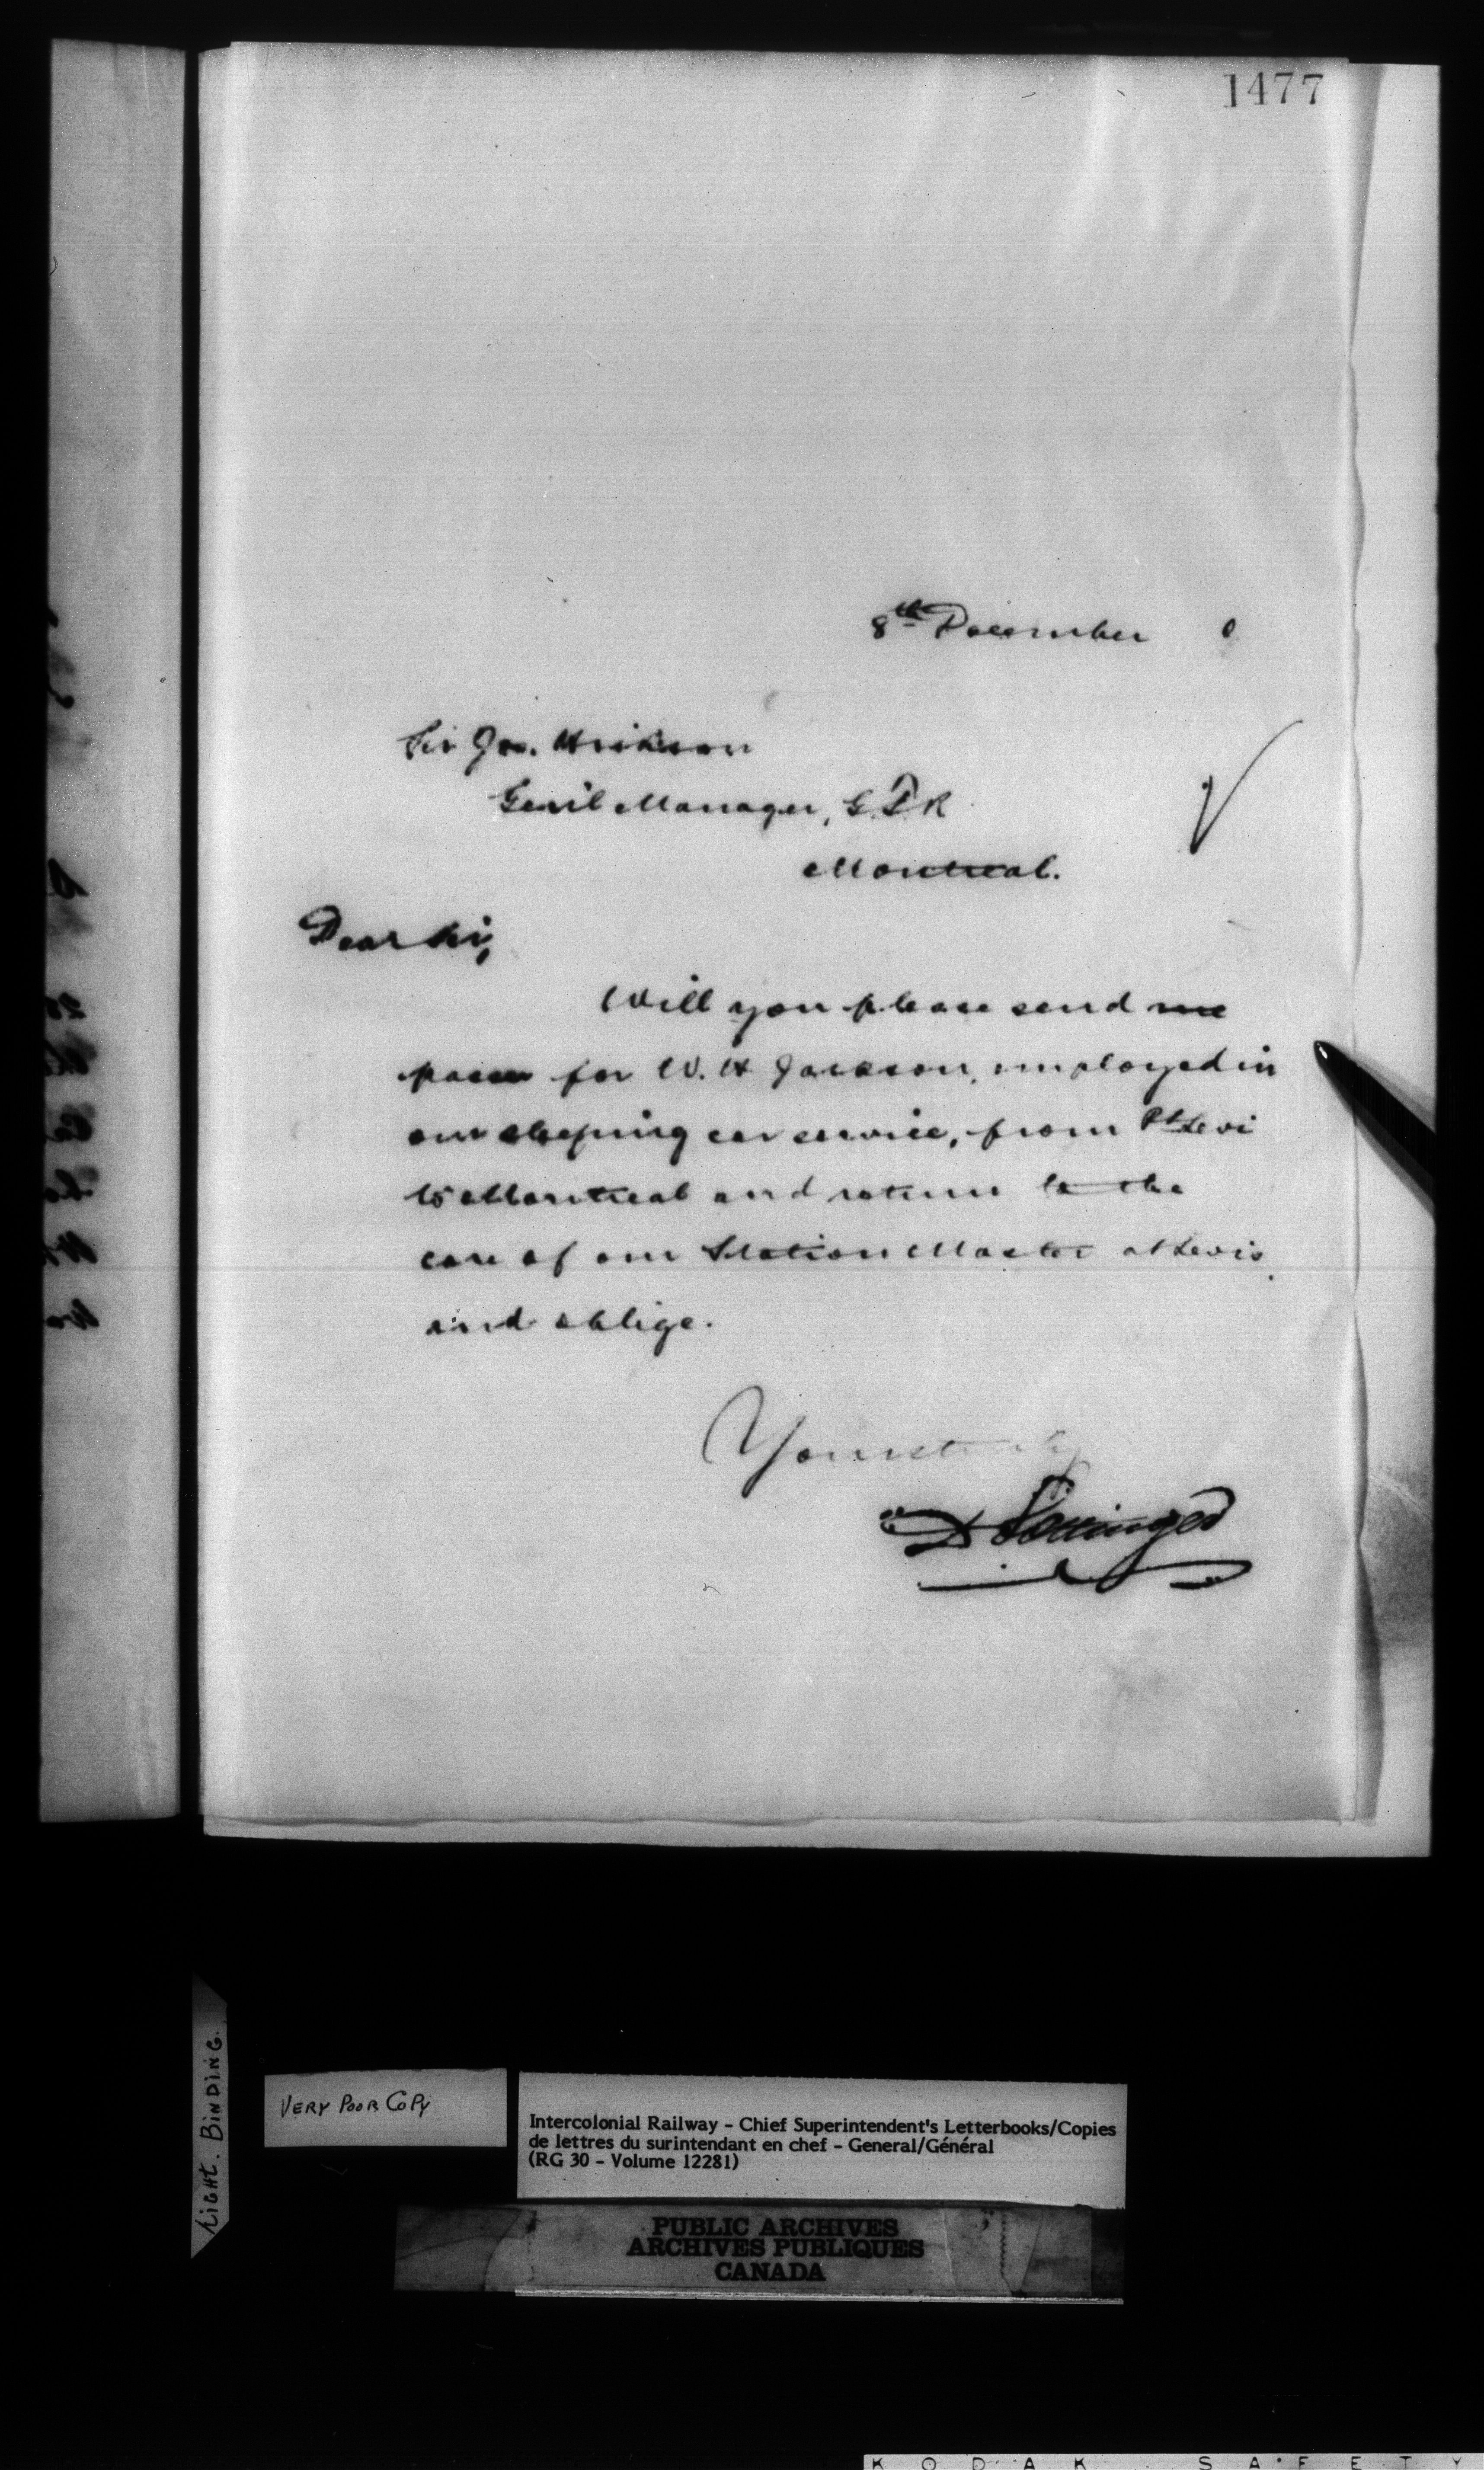 1477
8th December 0
Sir Jos. Hickson
Gen'l Manager, G.T.R
Montreal.
Dear Sir,
Will you please send me
passes for W. H Jackson, employed in
our sleeping car service, from Pt Levi
to Montreal and return to the
care of our Station Master at Levis,
and oblige.
Yours truly
D Pottinger
LIGHT. BINDING.
VERY POOR COPY
Intercolonial Railway - Chief Superintendent's Letterbooks/Copies
de lettres du surintendant en chef - General/Général
(RG 30 - Volume 12281)
PUBLIC ARCHIVES
ARCHIVES PUBLIQUES
CANADA
KODAK SAFETY